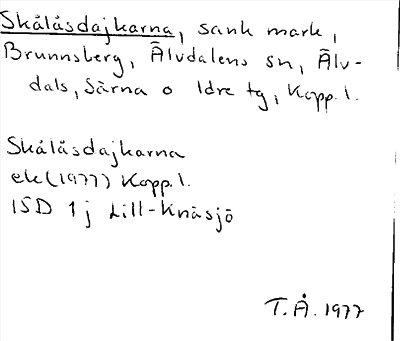 Skålåsdajkarna, sank mark,
Brunnsberg, Älvdalens sn, Älv-
dals, Särna o Idre tg, Kopp. l.
Skålåsdajkarna
ek (1977) Kopp. l.
15D 1j Lill-Knäsjö
T.Å. 1977